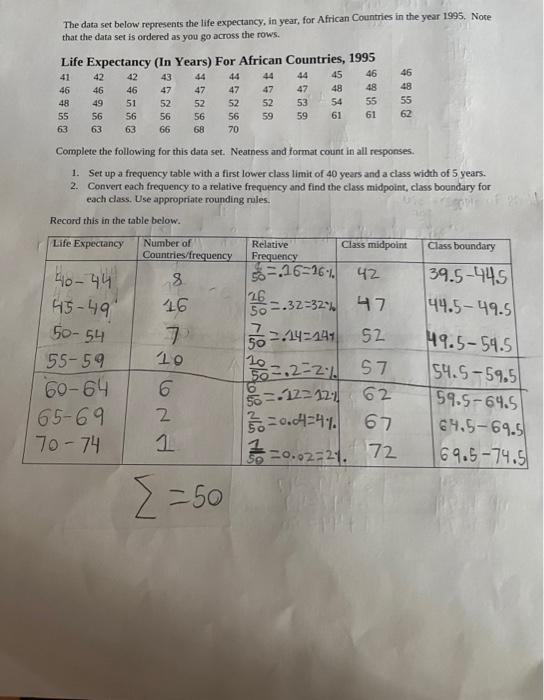 The data set below represents the life expectancy, in year, for African Countries in the year 1995. Note
that the data set is ordered as you go across the rows.
Life Expectancy (In Years) For African Countries, 1995
41 42 42 43 44 44 44 44 45 46 46
46 46 46 47 47 47 47 47 48 48 48
48 49 51 52 52 52 52 53 54 55 55
55 56 56 56 56 56 59 59 61 61 62
63 63 63 66 68 70
Complete the following for this data set. Neatness and format count in all responses.
1. Set up a frequency table with a first lower class limit of 40 years and a class width of 5 years.
2. Convert each frequency to a relative frequency and find the class midpoint, class boundary for
each class. Use appropriate rounding rules.
Record this in the table below.
Life Expectancy Number of Relative Class midpoint Class boundary
Countries/frequency Frequency
40-44 8 8/50 =.16=16% 42 39.5-44.5
45-49 16 16/50 =.32=32% 47 44.5-49.5
50-54 7 7/50 =.14=14% 52 49.5-54.5
55-59 10 10/50 =.2=2% 57 54.5-59.5
60-64 6 6/50 =.12=12% 62 59.5-64.5
65-69 2 2/50 =0.04=4% 67 64.5-69.5
70-74 1 1/50 =0.02=2% 72 69.5-74.5
Σ =50